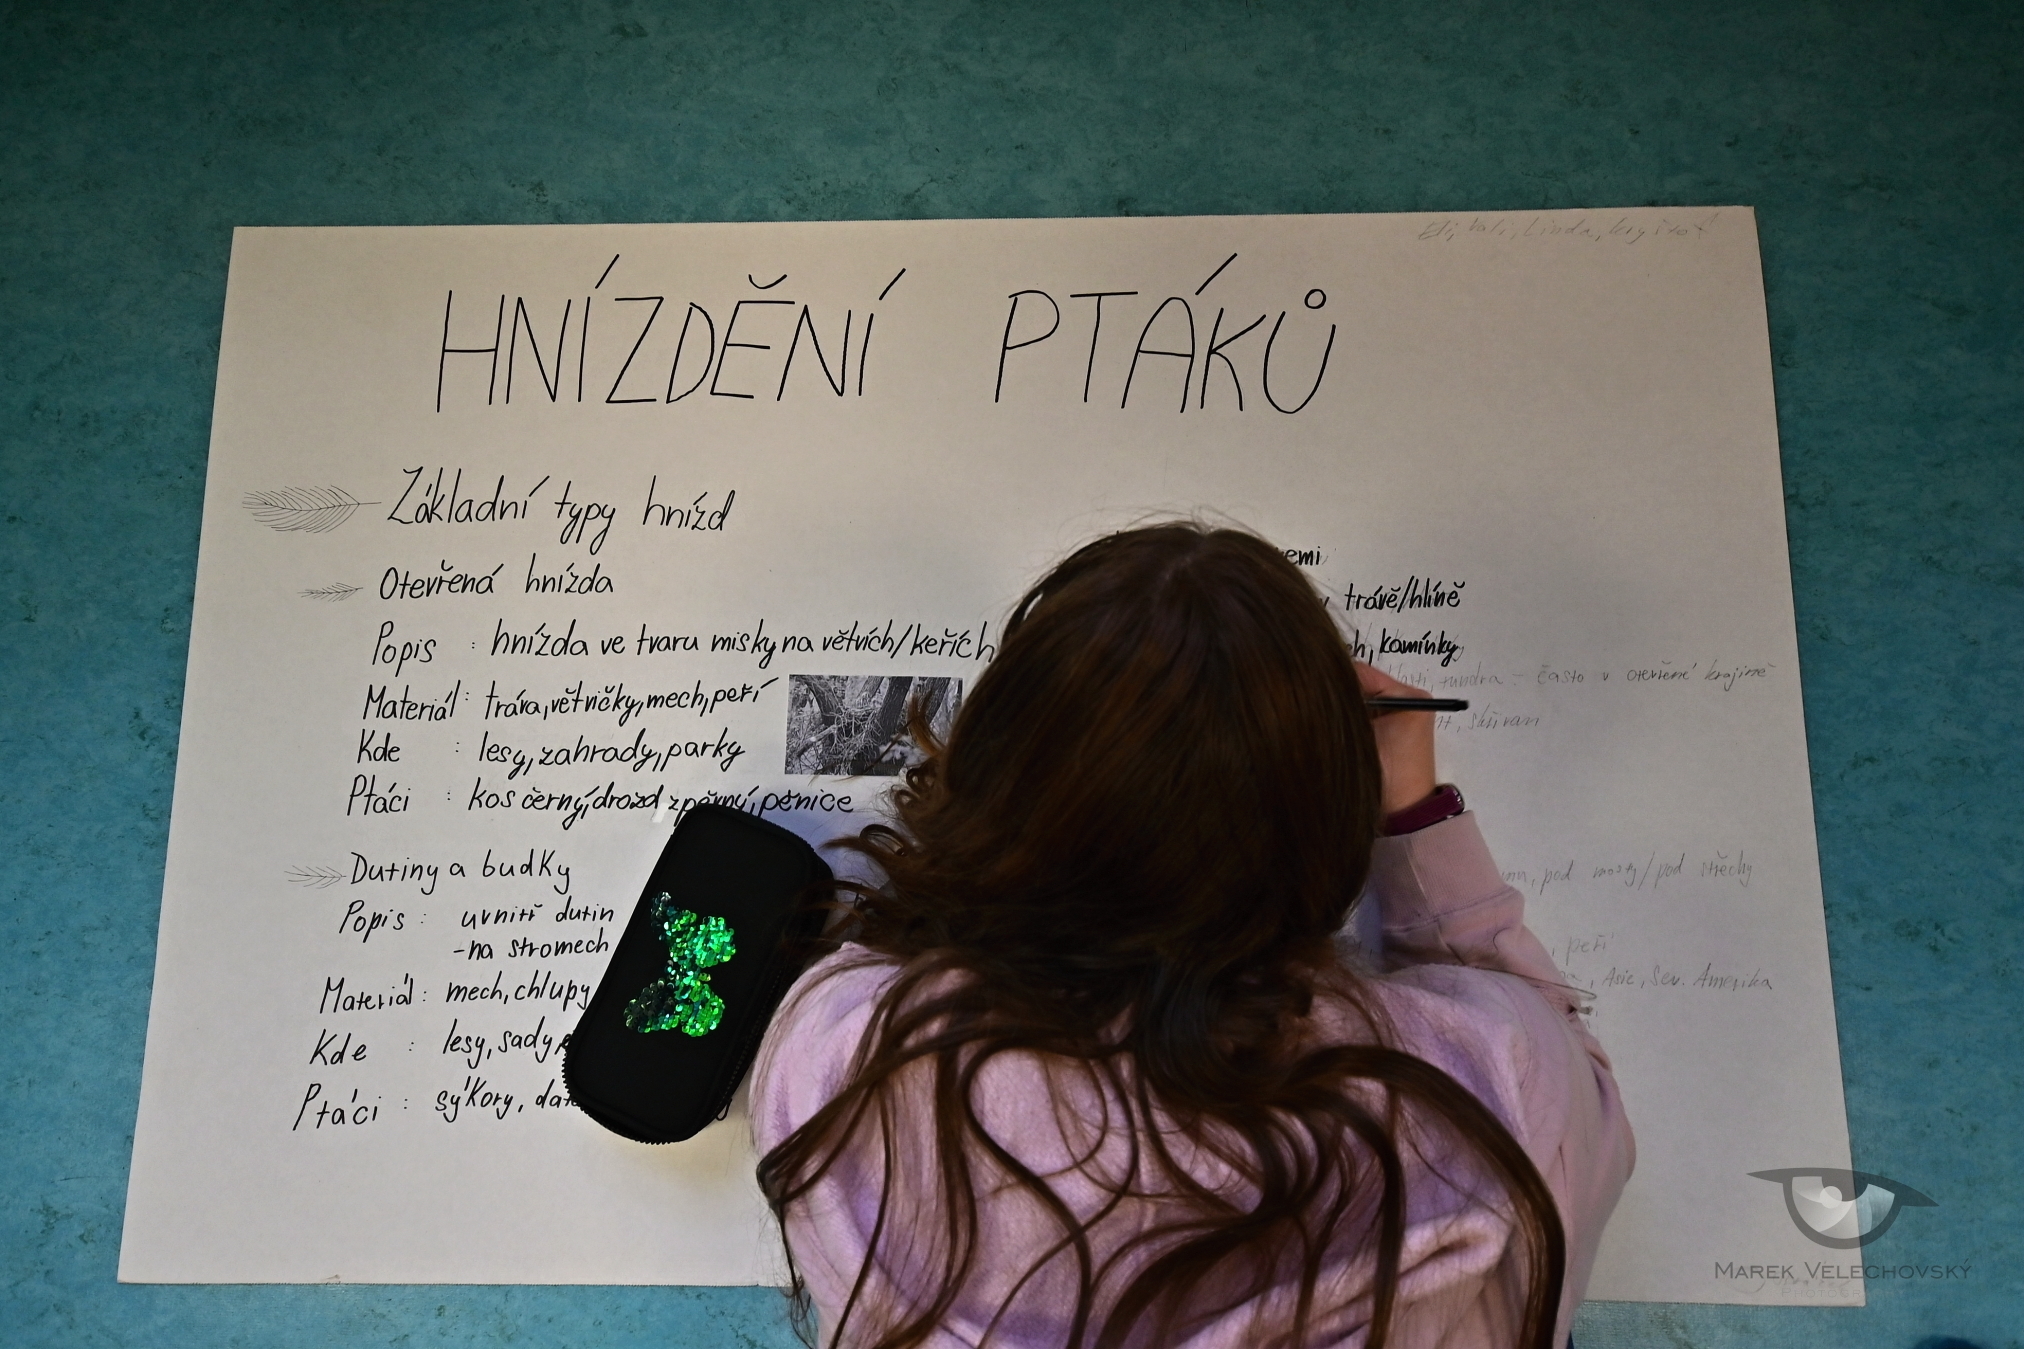 Linda,
HNÍZDĚNÍ PTÁKŮ
Základní typy hnízd
Otevřená hnízda
Popis : hnízda ve tvaru misky na větvích/keřích
Materiál: tráva, větvičky, mech, peří
Kde : lesy, zahrady, parky
Ptáci : kos černý, drozd zpěvný, pěnice
Dutiny a budky
Popis : uvnitř dutin
-na stromech
Materiál: mech, chlupy
Kde : lesy, sady,
Ptáci : sýkory,
trávě/hlíně
kamínky,
tundra - často v otevřené krajině
skřivan
pod mosty/pod střechy
, peří
, Asie, Sev. Amerika
MAREK VELECHOVSKÝ